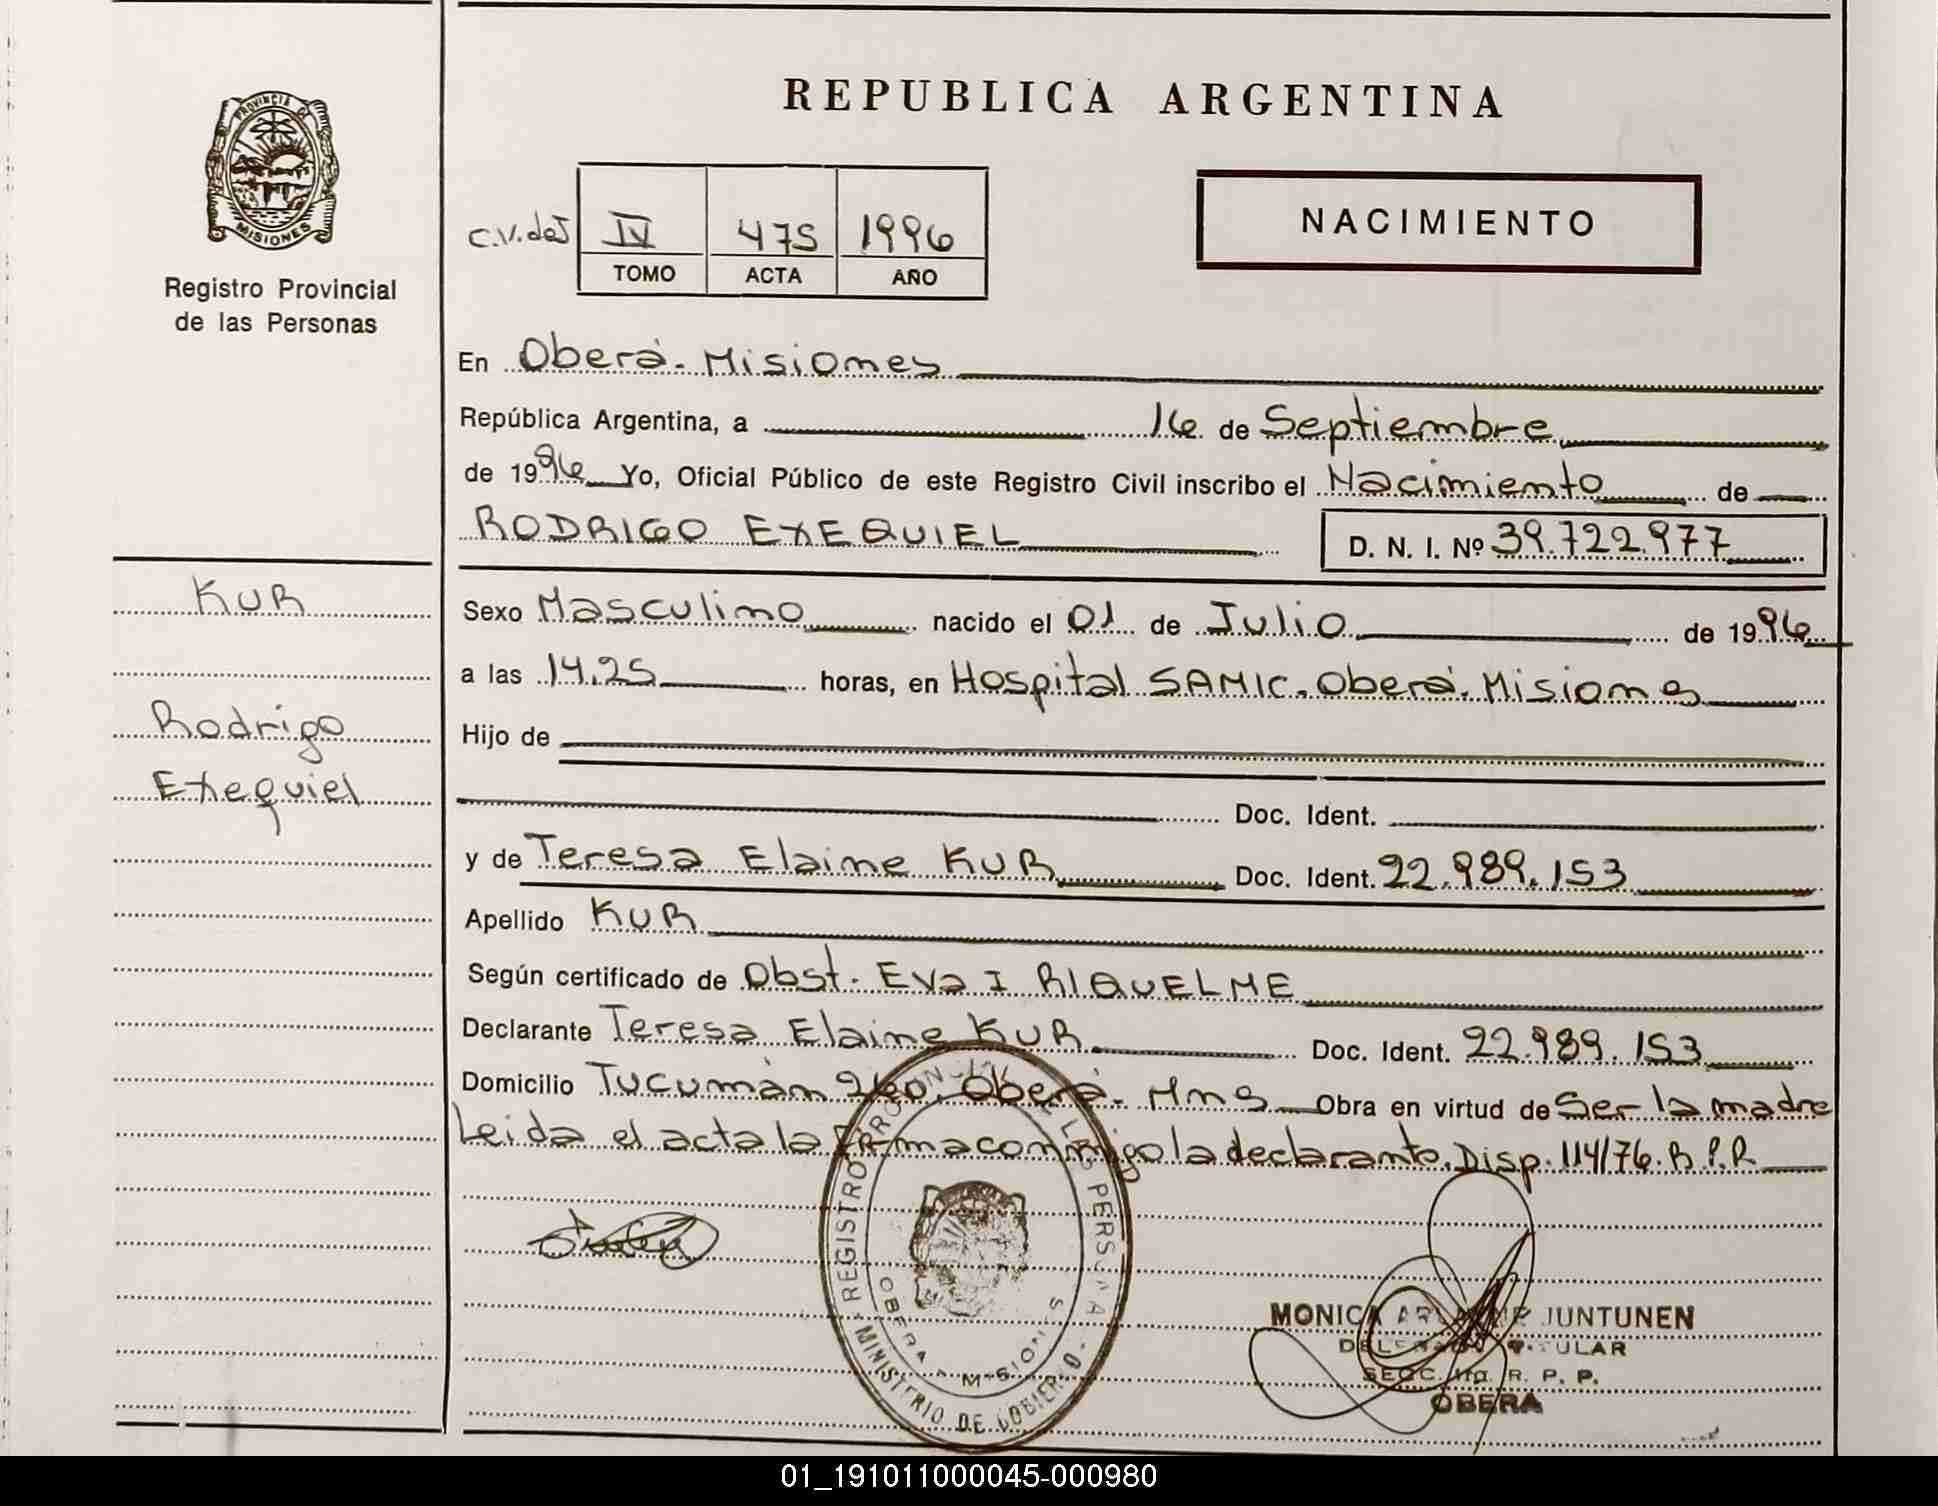 REPUBLICA ARGENTINA
PROVINCIA DE
MISIONES
Registro Provincial
de las Personas
C.V.deJ
IV 475 1996
TOMO ACTA AÑO
NACIMIENTO
En Oberá. Misiones
República Argentina, a 16 de Septiembre
de 1996 Yo, Oficial Público de este Registro Civil inscribo el Nacimiento de
RODRIGO EXEQUIEL D. N. I. Nº 39.722.977
KUR
Rodrigo
Exequiel
Sexo Masculino nacido el 01 de Julio de 1996
a las 14.25 horas, en Hospital SAMIC. Oberá. Misiones
Hijo de
Doc. Ident.
y de Teresa Elaine KUR Doc. Ident. 22.989.153
Apellido KUR
Según certificado de Obst. Eva I RIQUELME
Declarante Teresa Elaine KUR Doc. Ident. 22.989.153
Domicilio Tucumán 260. Oberá. Mns Obra en virtud de Ser la madre
Leida el acta la firma conmigo la declarante. Disp. 114/76. R.P.R
REGISTRO PROVINCIAL DE LAS PERSONAS
OBERA - MISIONES
MINISTERIO DE GOBIERNO
MONICA JUNTUNEN
TITULAR
SECC. R. P. P.
OBERA
01_191011000045-000980